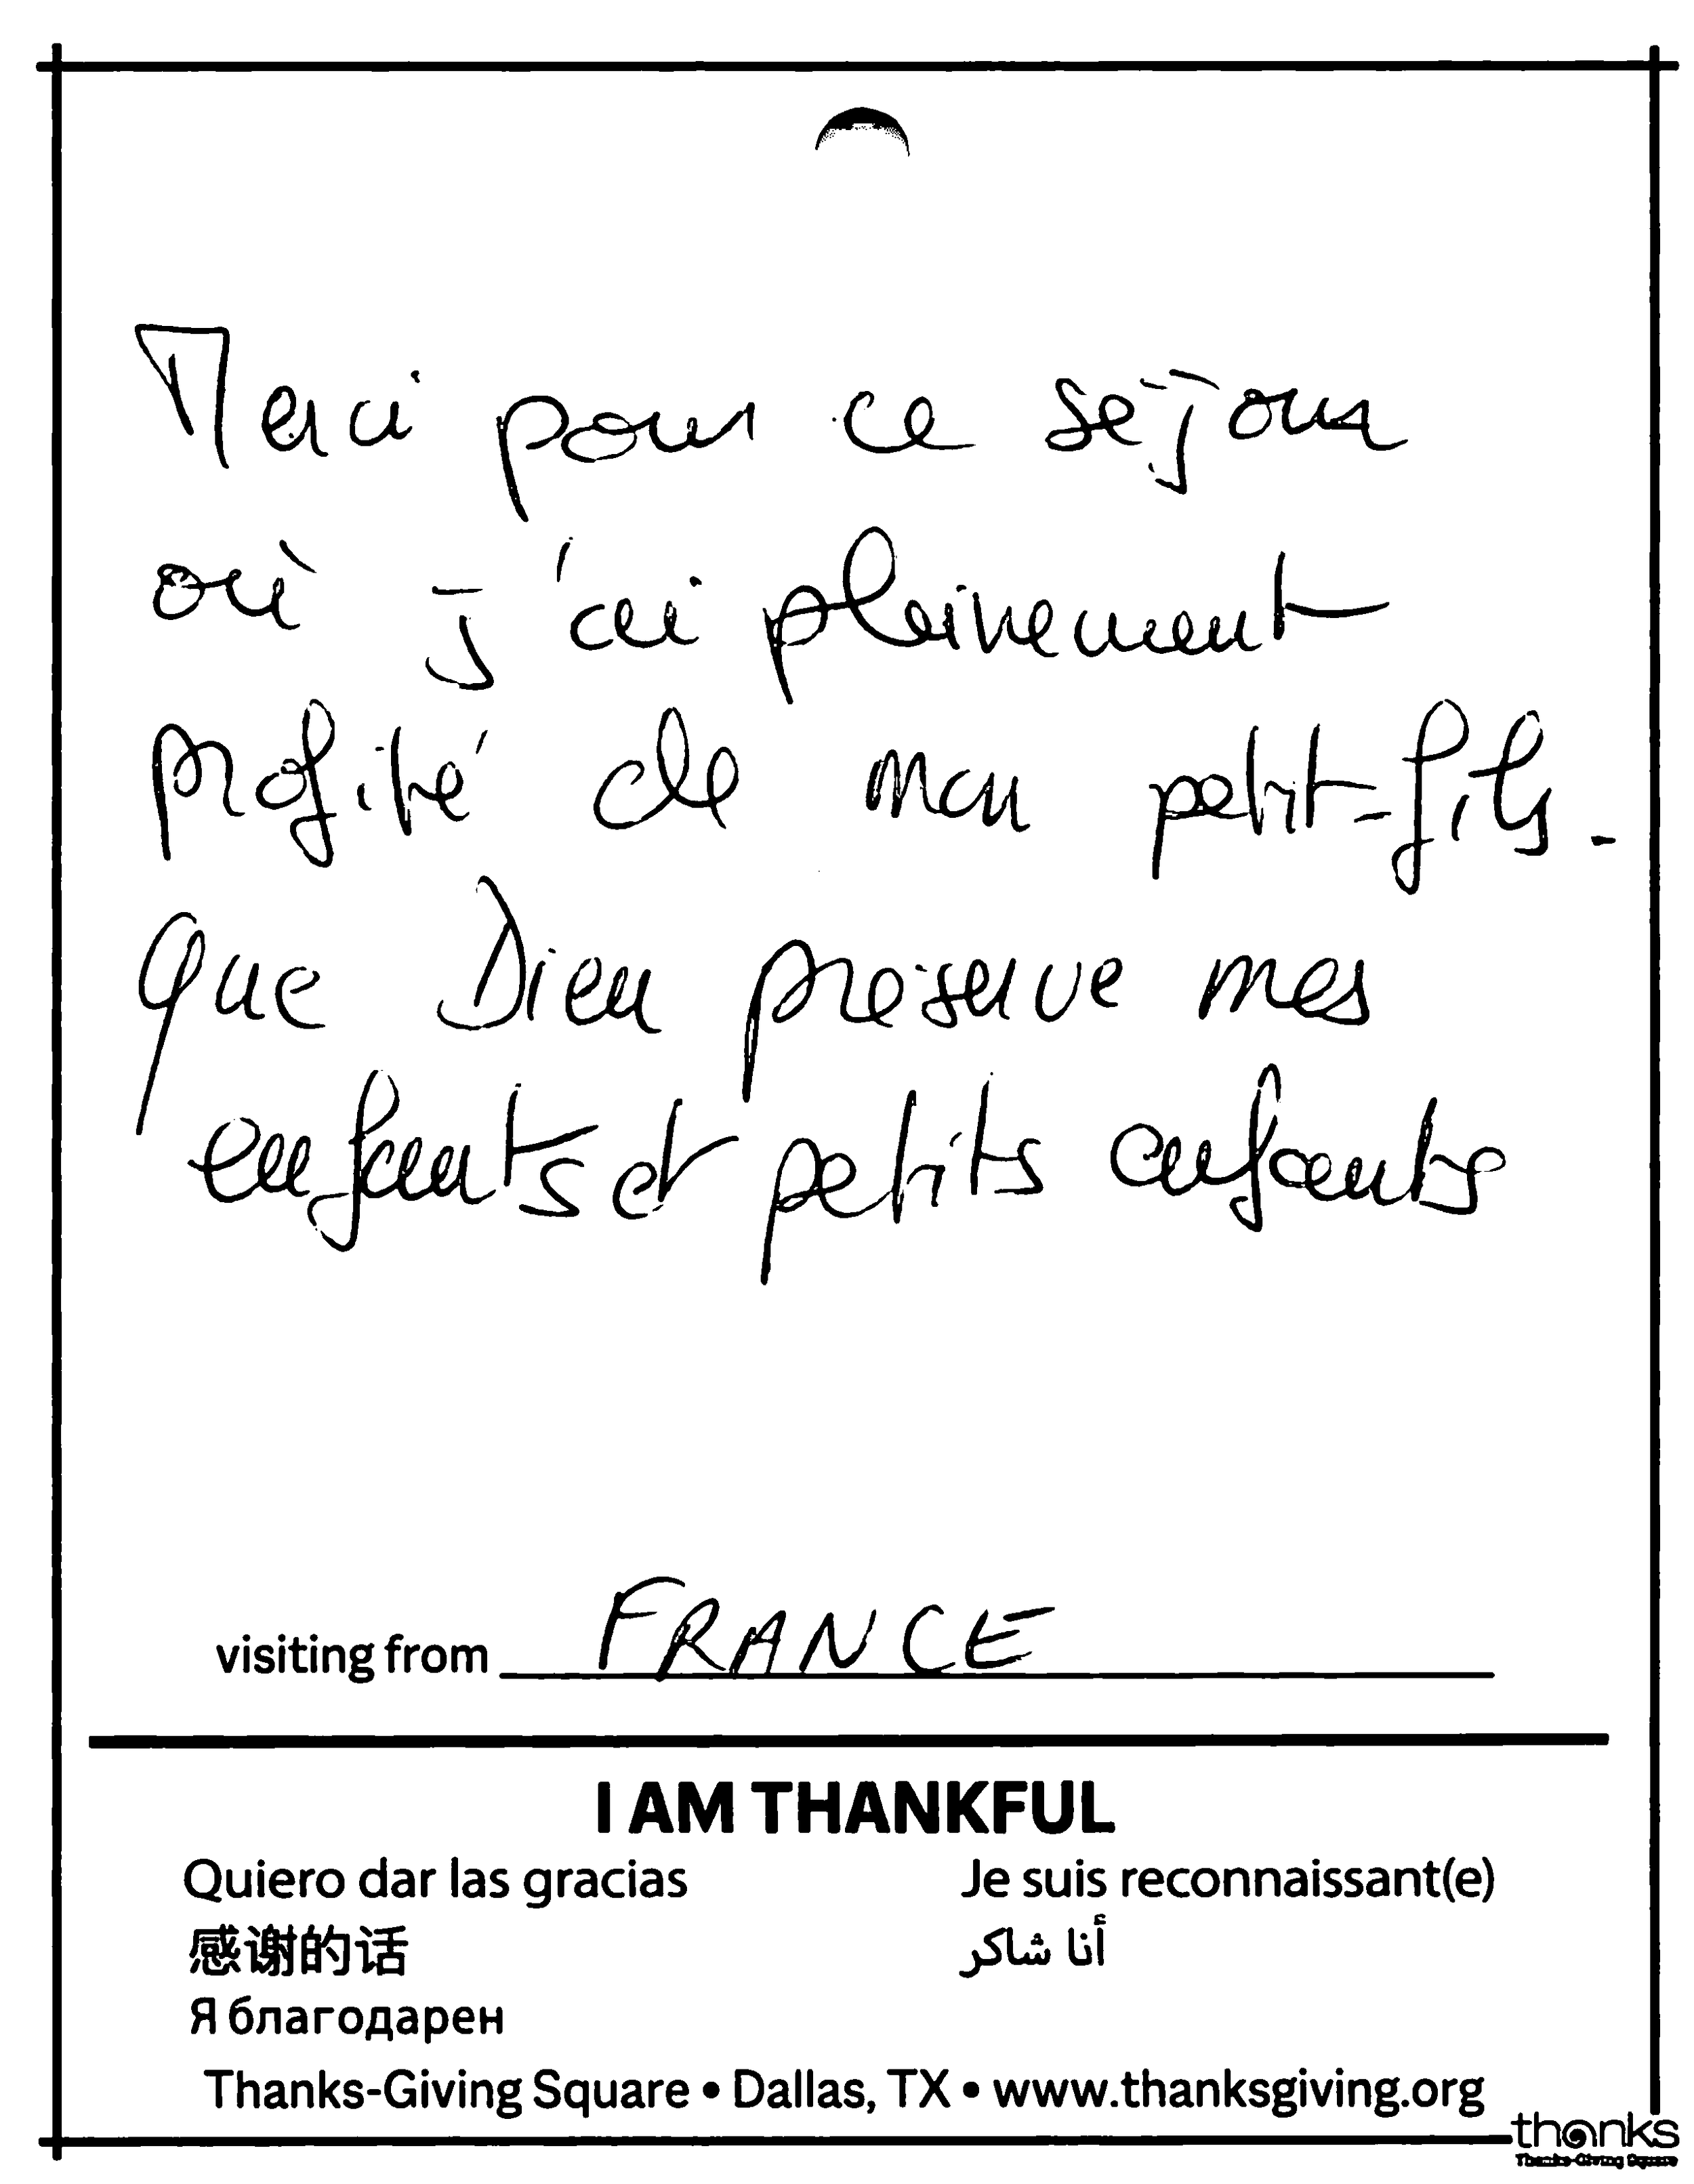 Merci pour ce séjour
où j'ai pleinement
profité de mon petit-fils.
Que Dieu préserve mes
enfants et petits enfants
visiting from FRANCE
I AM THANKFUL
Quiero dar las gracias
Je suis reconnaissant(e)
感谢的话
أنا شاكر
Я благодарен
Thanks-Giving Square • Dallas, TX • www.thanksgiving.org
thanks
Thanks-Giving Square